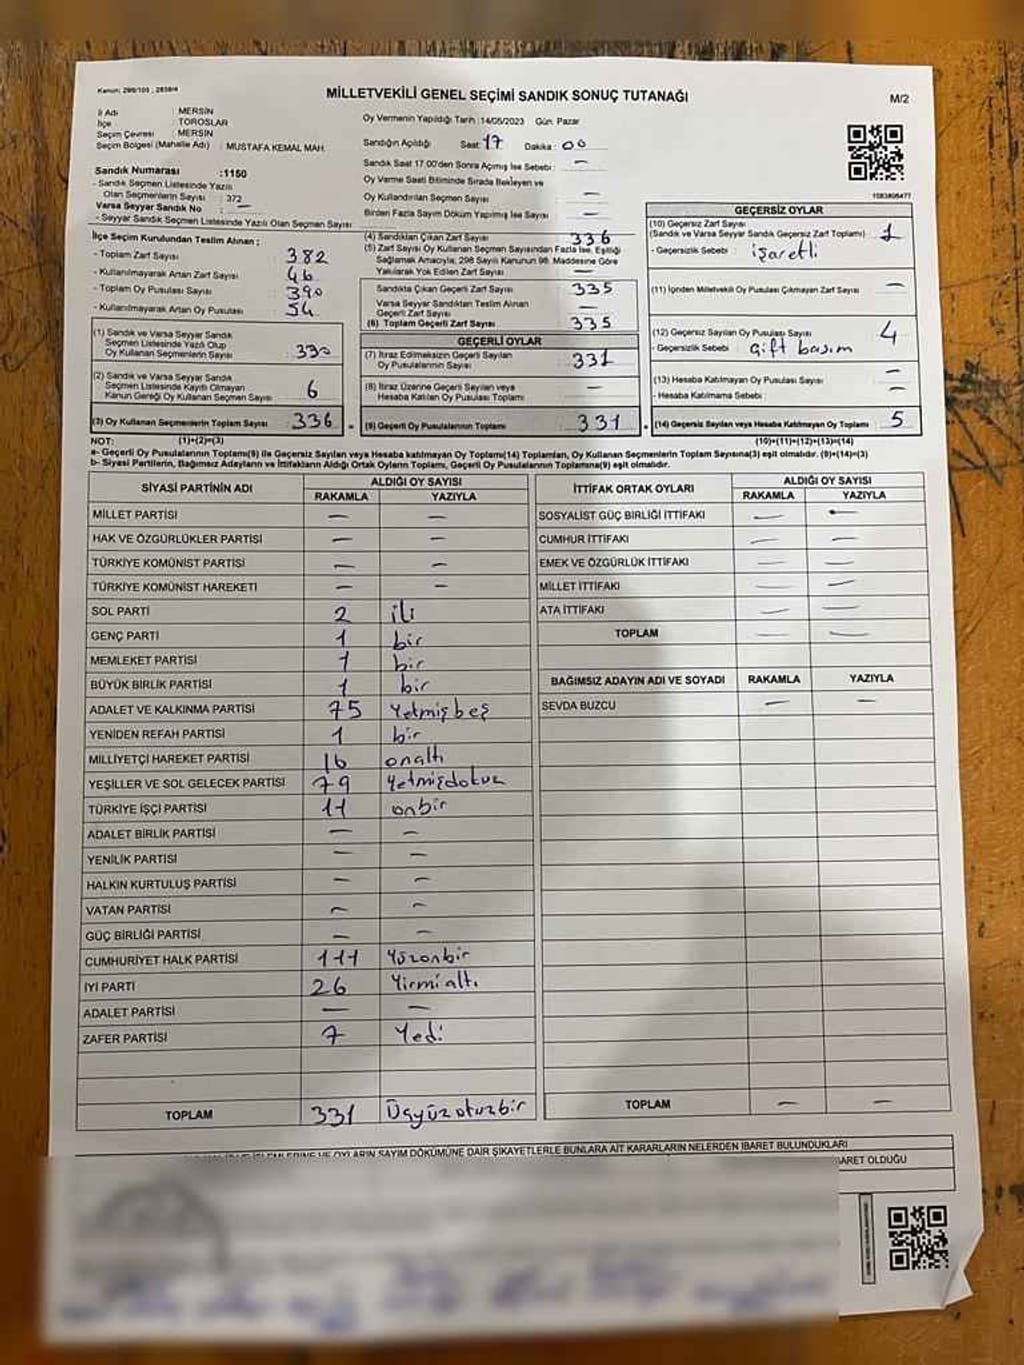 Kanun: 298/105 ; 2839/4
MİLLETVEKİLİ GENEL SEÇİMİ SANDIK SONUÇ TUTANAĞI
M/2
İl Adı : MERSİN
İlçe : TOROSLAR
Seçim Çevresi : MERSİN
Seçim Bölgesi (Mahalle Adı) : MUSTAFA KEMAL MAH.
Oy Vermenin Yapıldığı Tarih :14/05/2023 Gün: Pazar
Sandığın Açıldığı Saat: 17 Dakika : 00
Sandık Saat 17:00'den Sonra Açılmış İse Sebebi : —
Oy Verme Saati Bitiminde Sırada Bekleyen ve
Oy Kullandırılan Seçmen Sayısı —
Birden Fazla Sayım Döküm Yapılmış İse Sayısı —
Sandık Numarası :1150
- Sandık Seçmen Listesinde Yazılı
Olan Seçmenlerin Sayısı : 372
Varsa Seyyar Sandık No —
- Seyyar Sandık Seçmen Listesinde Yazılı Olan Seçmen Sayısı
İlçe Seçim Kurulundan Teslim Alınan ;
- Toplam Zarf Sayısı 382
- Kullanılmayarak Artan Zarf Sayısı 46
- Toplam Oy Pusulası Sayısı 390
- Kullanılmayarak Artan Oy Pusulası 54
(1) Sandık ve Varsa Seyyar Sandık
Seçmen Listesinde Yazılı Olup
Oy Kullanan Seçmenlerin Sayısı 330
(2) Sandık ve Varsa Seyyar Sandık
Seçmen Listesinde Kayıtlı Olmayan
Kanun Gereği Oy Kullanan Seçmen Sayısı 6
(3) Oy Kullanan Seçmenlerin Toplam Sayısı 336
(4) Sandıktan Çıkan Zarf Sayısı 336
(5) Zarf Sayısı Oy Kullanan Seçmen Sayısından Fazla İse, Eşitliği
Sağlamak Amacıyla; 298 Sayılı Kanunun 98. Maddesine Göre
Yakılarak Yok Edilen Zarf Sayısı —
Sandıkta Çıkan Geçerli Zarf Sayısı 335
Varsa Seyyar Sandıktan Teslim Alınan
Geçerli Zarf Sayısı —
(6) Toplam Geçerli Zarf Sayısı 335
GEÇERLİ OYLAR
(7) İtiraz Edilmeksizin Geçerli Sayılan
Oy Pusulalarının Sayısı 331
(8) İtiraz Üzerine Geçerli Sayılan veya
Hesaba Katılan Oy Pusulası Toplamı —
= (9) Geçerli Oy Pusulalarının Toplamı 331
1583808477
GEÇERSİZ OYLAR
(10) Geçersiz Zarf Sayısı
(Sandık ve Varsa Seyyar Sandık Geçersiz Zarf Toplamı) 1
- Geçersizlik Sebebi : işaretli
(11) İçinden Milletvekili Oy Pusulası Çıkmayan Zarf Sayısı —
(12) Geçersiz Sayılan Oy Pusulası Sayısı 4
- Geçersizlik Sebebi çift basım
(13) Hesaba Katılmayan Oy Pusulası Sayısı —
- Hesaba Katılmama Sebebi : —
+ (14) Geçersiz Sayılan veya Hesaba Katılmayan Oy Toplamı 5
NOT: (1)+(2)=(3) (10)+(11)+(12)+(13)=(14)
a- Geçerli Oy Pusulalarının Toplamı(9) ile Geçersiz Sayılan veya Hesaba katılmayan Oy Toplamı(14) Toplamları, Oy Kullanan Seçmenlerin Toplam Sayısına(3) eşit olmalıdır. (9)+(14)=(3)
b- Siyasi Partilerin, Bağımsız Adayların ve İttifakların Aldığı Ortak Oyların Toplamı, Geçerli Oy Pusulalarının Toplamına(9) eşit olmalıdır.
SİYASİ PARTİNİN ADI ALDIĞI OY SAYISI
RAKAMLA YAZIYLA
MİLLET PARTİSİ — —
HAK VE ÖZGÜRLÜKLER PARTİSİ — —
TÜRKİYE KOMÜNİST PARTİSİ — —
TÜRKİYE KOMÜNİST HAREKETİ — —
SOL PARTİ 2 iki
GENÇ PARTİ 1 bir
MEMLEKET PARTİSİ 1 bir
BÜYÜK BİRLİK PARTİSİ 1 bir
ADALET VE KALKINMA PARTİSİ 75 Yetmişbeş
YENİDEN REFAH PARTİSİ 1 bir
MİLLİYETÇİ HAREKET PARTİSİ 16 onaltı
YEŞİLLER VE SOL GELECEK PARTİSİ 79 Yetmişdokuz
TÜRKİYE İŞÇİ PARTİSİ 11 onbir
ADALET BİRLİK PARTİSİ — —
YENİLİK PARTİSİ — —
HALKIN KURTULUŞ PARTİSİ — —
VATAN PARTİSİ — —
GÜÇ BİRLİĞİ PARTİSİ — —
CUMHURİYET HALK PARTİSİ 111 Yüzonbir
İYİ PARTİ 26 Yirmialtı
ADALET PARTİSİ — —
ZAFER PARTİSİ 7 Yedi
TOPLAM 331 Üçyüzotuzbir
İTTİFAK ORTAK OYLARI ALDIĞI OY SAYISI
RAKAMLA YAZIYLA
SOSYALİST GÜÇ BİRLİĞİ İTTİFAKI — —
CUMHUR İTTİFAKI — —
EMEK VE ÖZGÜRLÜK İTTİFAKI — —
MİLLET İTTİFAKI — —
ATA İTTİFAKI — —
TOPLAM — —
BAĞIMSIZ ADAYIN ADI VE SOYADI RAKAMLA YAZIYLA
SEVDA BUZCU — —
TOPLAM — —
OYLARIN SAYIM DÖKÜMÜNE DAİR ŞİKAYETLERLE BUNLARA AİT KARARLARIN NELERDEN İBARET BULUNDUKLARI
OLDUĞU